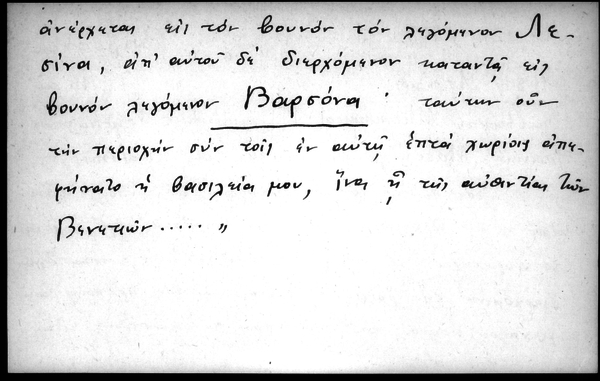 ἀνέρχεται εἰς τὸν βουνὸν τὸν λεγόμενον Λε-
σίνα, ἀπ' αὐτοῦ δὲ διερχόμενον καταντᾷ εἰς
βουνὸν λεγόμενον Βαρσόνα · ταύτην οὖν
τὴν περιοχὴν σὺν τοῖς ἐν αὐτῇ ἑπτὰ χωρίοις ἀπε-
φήνατο ἡ βασιλεία μου, ἵνα ᾖ τῆς αὐθεντίας τῶν
Βενετικῶν ..... „